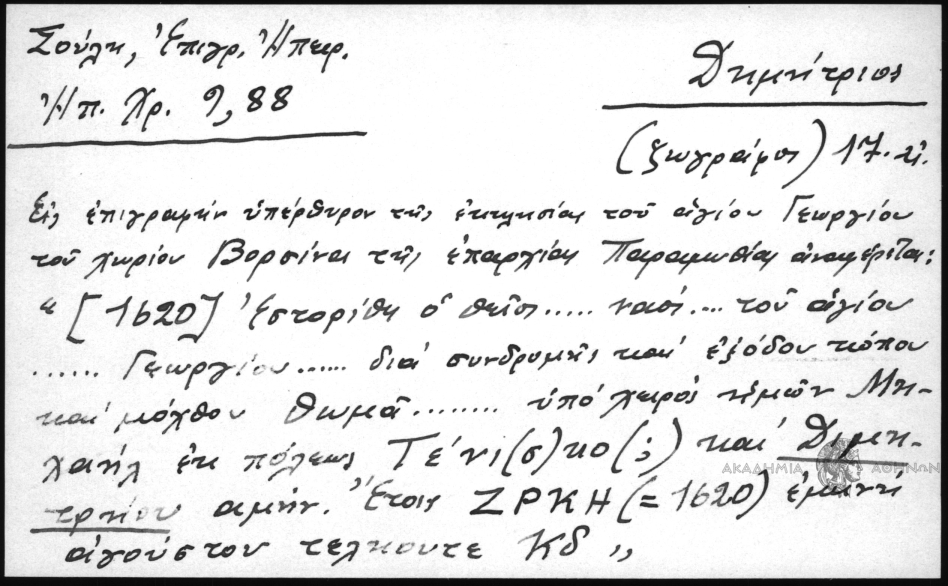 Σούλη, Ἐπιγρ. Ἠπειρ.
Ἠπ. Χρ. 9, 88
Δημήτριος
(ζωγράφος) 17. αἰ.
Εἰς ἐπιγραφὴν ὑπέρθυρον τῆς ἐκκλησίας τοῦ ἁγίου Γεωργίου
τοῦ χωρίου Βορσίνας τῆς ἐπαρχίας Παραμυθίας ἀναφέρεται:
"[1620] Ἐστορίθη ὁ θεῖος..... ναός.... τοῦ ἁγίου
...... Γεωργίου...... διὰ συνδρομῆς καὶ ἐξόδου κόπου
καὶ μόχθου Θωμᾶ........ ὑπὸ χειρὸς ἡμῶν Μη-
χαὴλ ἐκ πόλεως Τένι(σ)κο(;) καὶ Διμη-
τρίου ἀμήν. Ἔτος ΖΡΚΗ (=1620) ἐμηνὴ
αἰγούστου τελκουτε Κδ"
ΑΚΑΔΗΜΙΑ ΑΘΗΝΩΝ